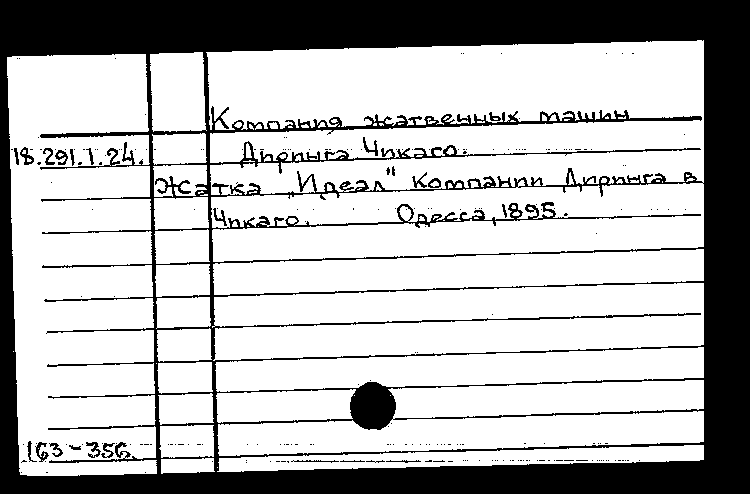 Компания жатвенных машин
18.291.1.24. Диринга Чикаго.
Жатка „Идеал" Компании Диринга в
Чикаго. Одесса, 1895.
163-356.